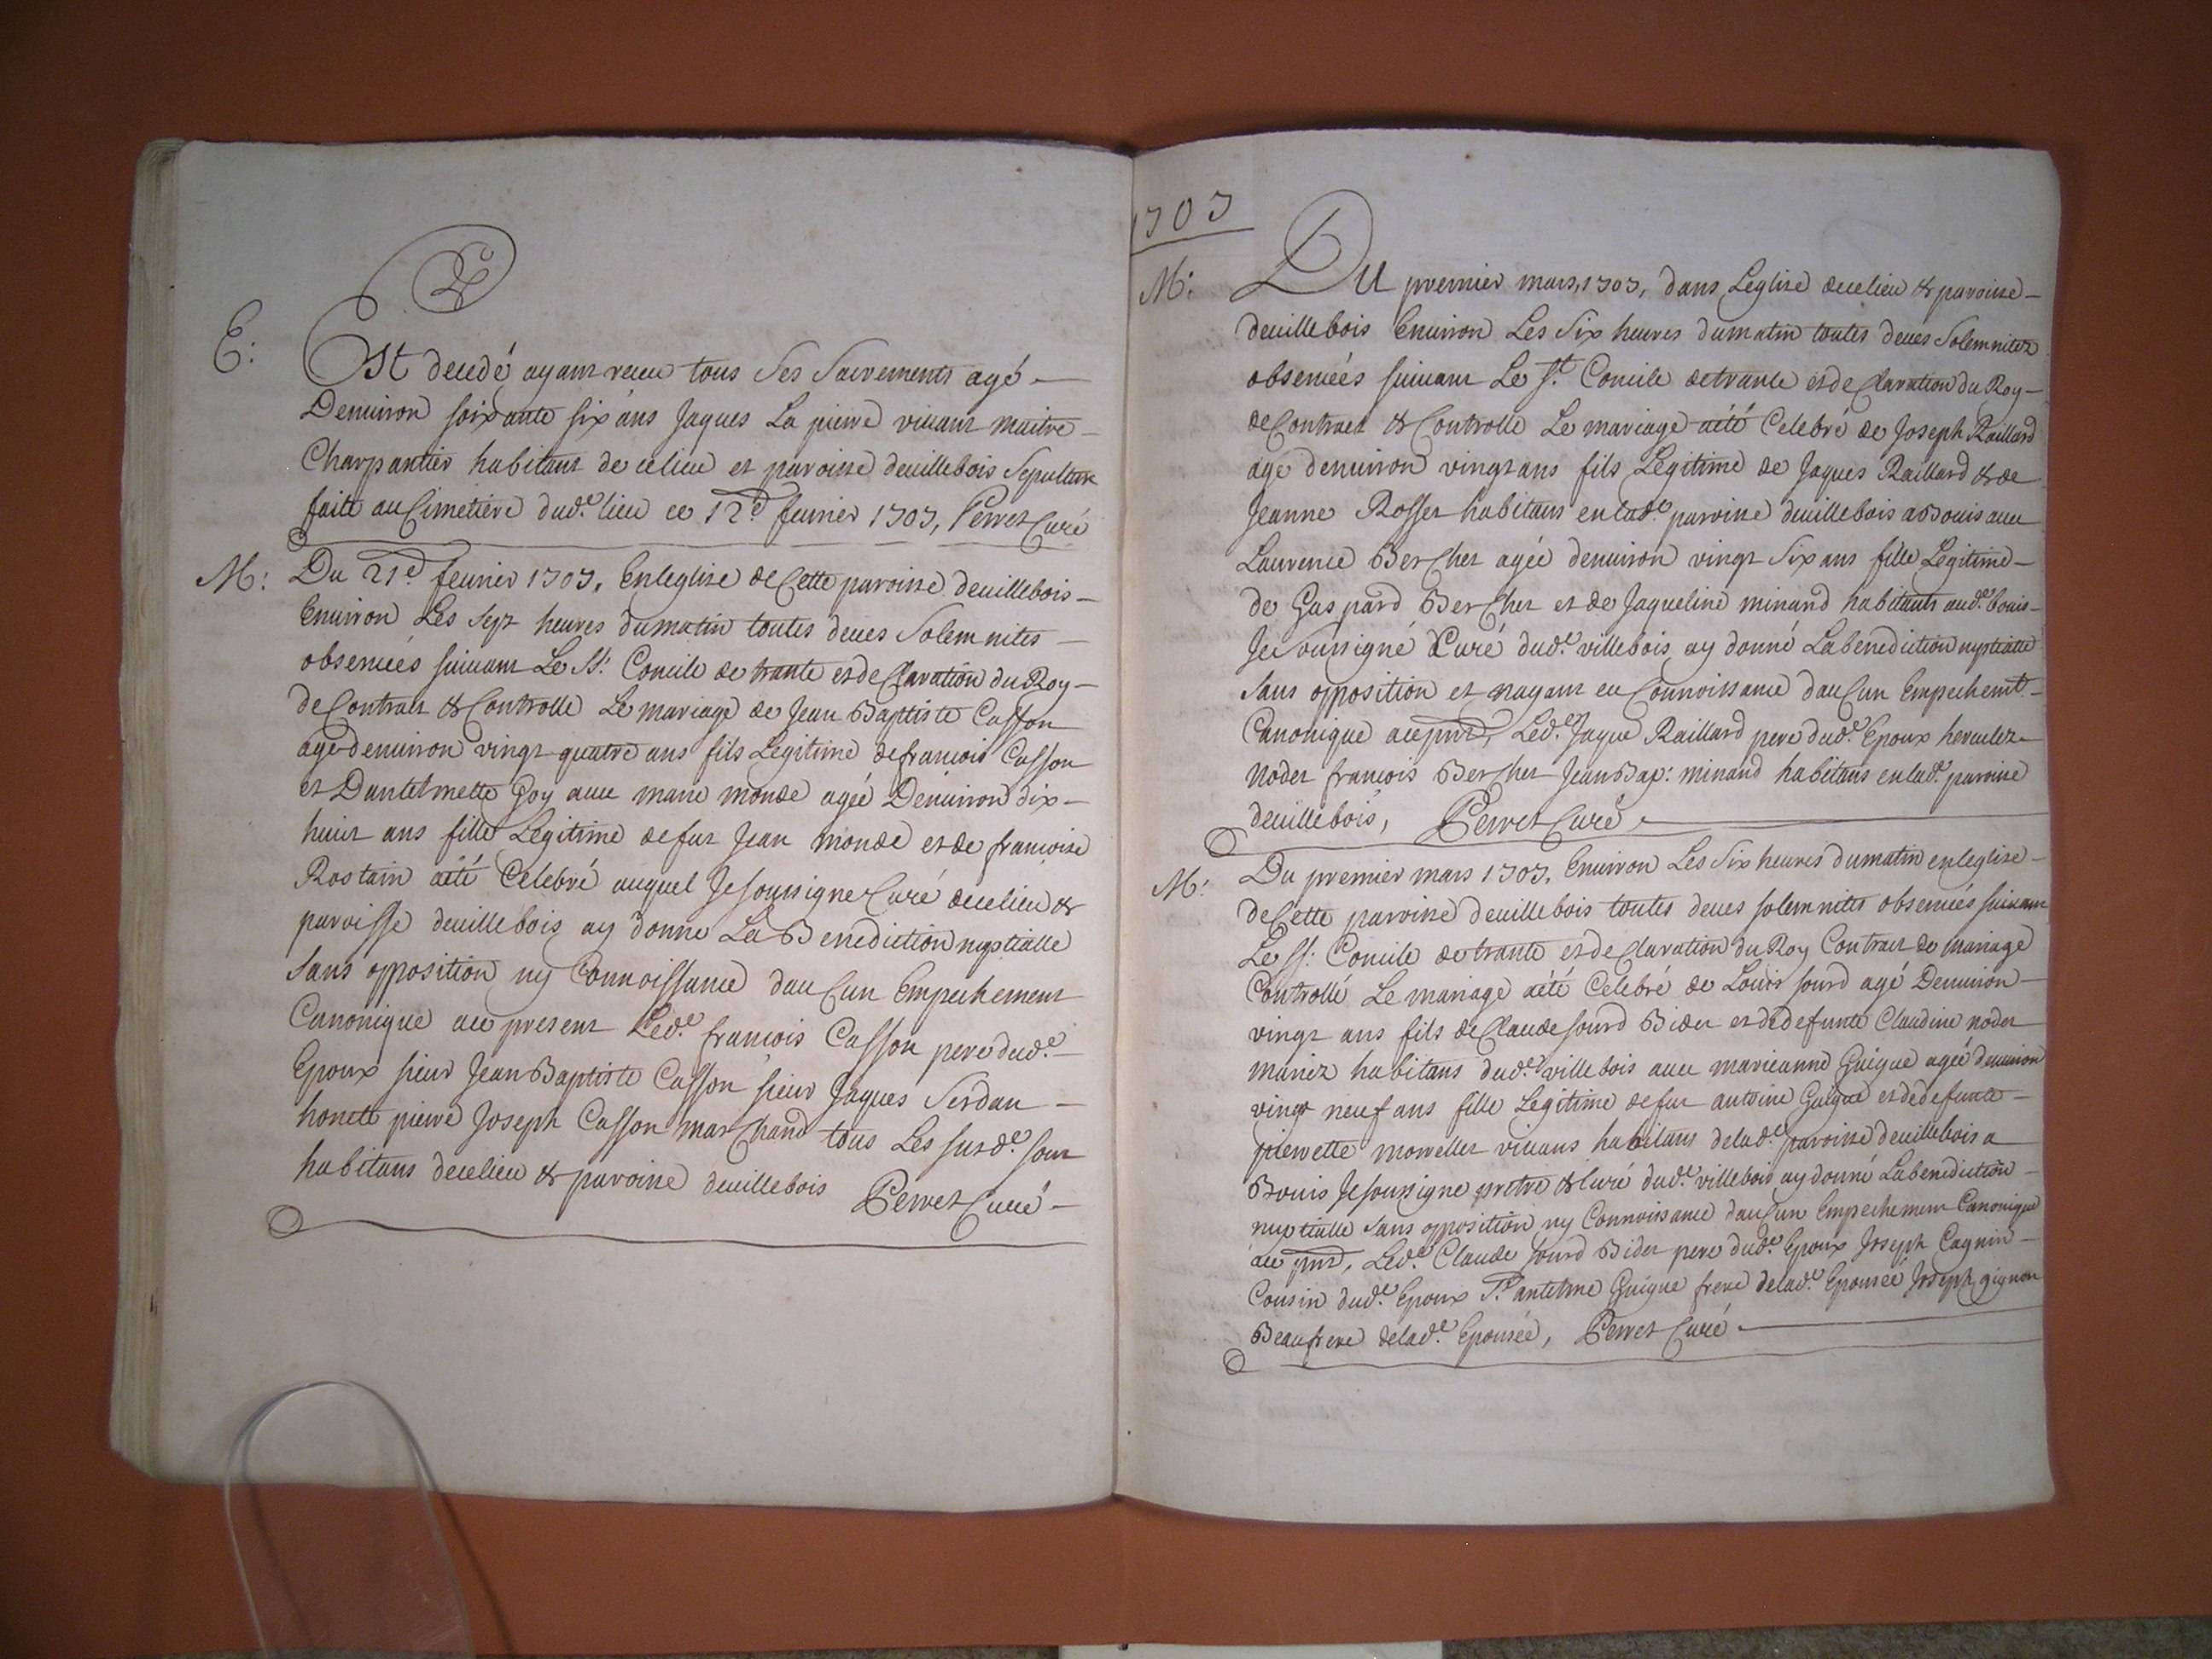 E:
Est decedé ayant receu tous Ses Sacrements agé
Denuiron soixante six ans Jaques La pierre viuant maitre
Charpantier habitant de celieu et paroisse deuillebois Sepulture
faite au Cimetiere dud.e lieu ce 12e feurier 1707, Perret Curé
M: Du 21e feurier 1707, Enleglise de Cette paroisse deuillebois
Enuiron Les Sept heures dumatin toutes deues Solemnites
obseruées suiuant Le St: Concile de trante et deClaration du Roy
deContract & Controlle Le mariage de Jean Baptiste Casson
agé denuiron vingt quatre ans fils Legitime defrancois Casson
et Dantelmette Goy auec marie monde agée Denuiron dix
huit ans fille Legitime defut Jean monde et de francoise
Rostain aété Celebré auquel Je soussigne Curé decelieu &
paroisse deuillebois ay donne La Benediction nuptialle
Sans opposition ny Connoissance dauCun Empechement
Canonique ace present Led.e francois Casson pere dud.e
Epoux sieur Jean Baptiste Casson sieur Jaques Serdan
honete pierre Joseph Casson marChand tous Les susd.e sont
habitans decelieu & paroisse deuillebois Perret Curé
1707
M: Du premier mars, 1707, dans Leglise decelieu & paroisse
deuillebois Enuiron Les Six heures dumatin toutes deues Solemnitez
obseruées suiuant Le St. Concile detrante et deClaration du Roy
deContract & Controlle Le mariage aété Celebré de Joseph Raillard
agé denuiron vingt ans fils Legitime de Jaques Raillard & de
Jeanne Rosset habitans enlad.e paroisse deuillebois a Bouis auec
Laurence BerChet agée denuiron vingt Six ans fille Legitime
de Gaspard BerChet et de Jaqueline minand habitants aud.e bouis
Je Soussigné Curé dud.e villebois ay donné Labenediction nuptialle
Sans opposition et nayant eu Connoissance dauCun Empechemt.
Canonique acepnt, Led.e Jaque Raillard pere dud.e Epoux
Nodet francois BerChet Jean Bap: minand habitans enlad.e paroisse
deuillebois, Perret Curé
M: Du premier mars 1707, Enuiron Les Six heures dumatin enleglise
deCette paroisse deuillebois toutes deues solemnites obseruées suiuant
Le St: Concile detrante et deClaration du Roy Contract de mariage
Controllé Le mariage aété Celebré de Louis sourd agé Denuiron
vingt ans fils deClaude sourd Bidet et dedefunte Claudine nodet
mariez habitans dud.e villebois auec marieanne Guigue agée denuiron
vingt neuf ans fille Legitime defut antoine Guigue et dedefunte
pierrette morrellet viuans habitans delad.e paroisse deuillebois a
Bouis Jesoussigne pretre & Curé dud.e villebois ay donné Labenediction
nuptialle Sans opposition ny Connoissance dauCun Empechement Canonique
ace pnt, Led.e Claude sourd Bidet pere dud.e Epoux Joseph Cagnin
Cousin dud.e Epoux Sr antelme Guigue frere delad.e Epousée Joseph gignon
Beaufrere delad.e Epousée, Perret Curé